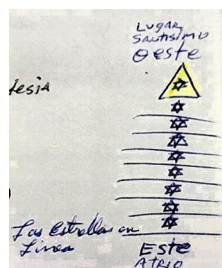 LUGAR
SANTISIMO
OESTE
lesia
Las Estrellas en
Linea
ESTE
ATRIO